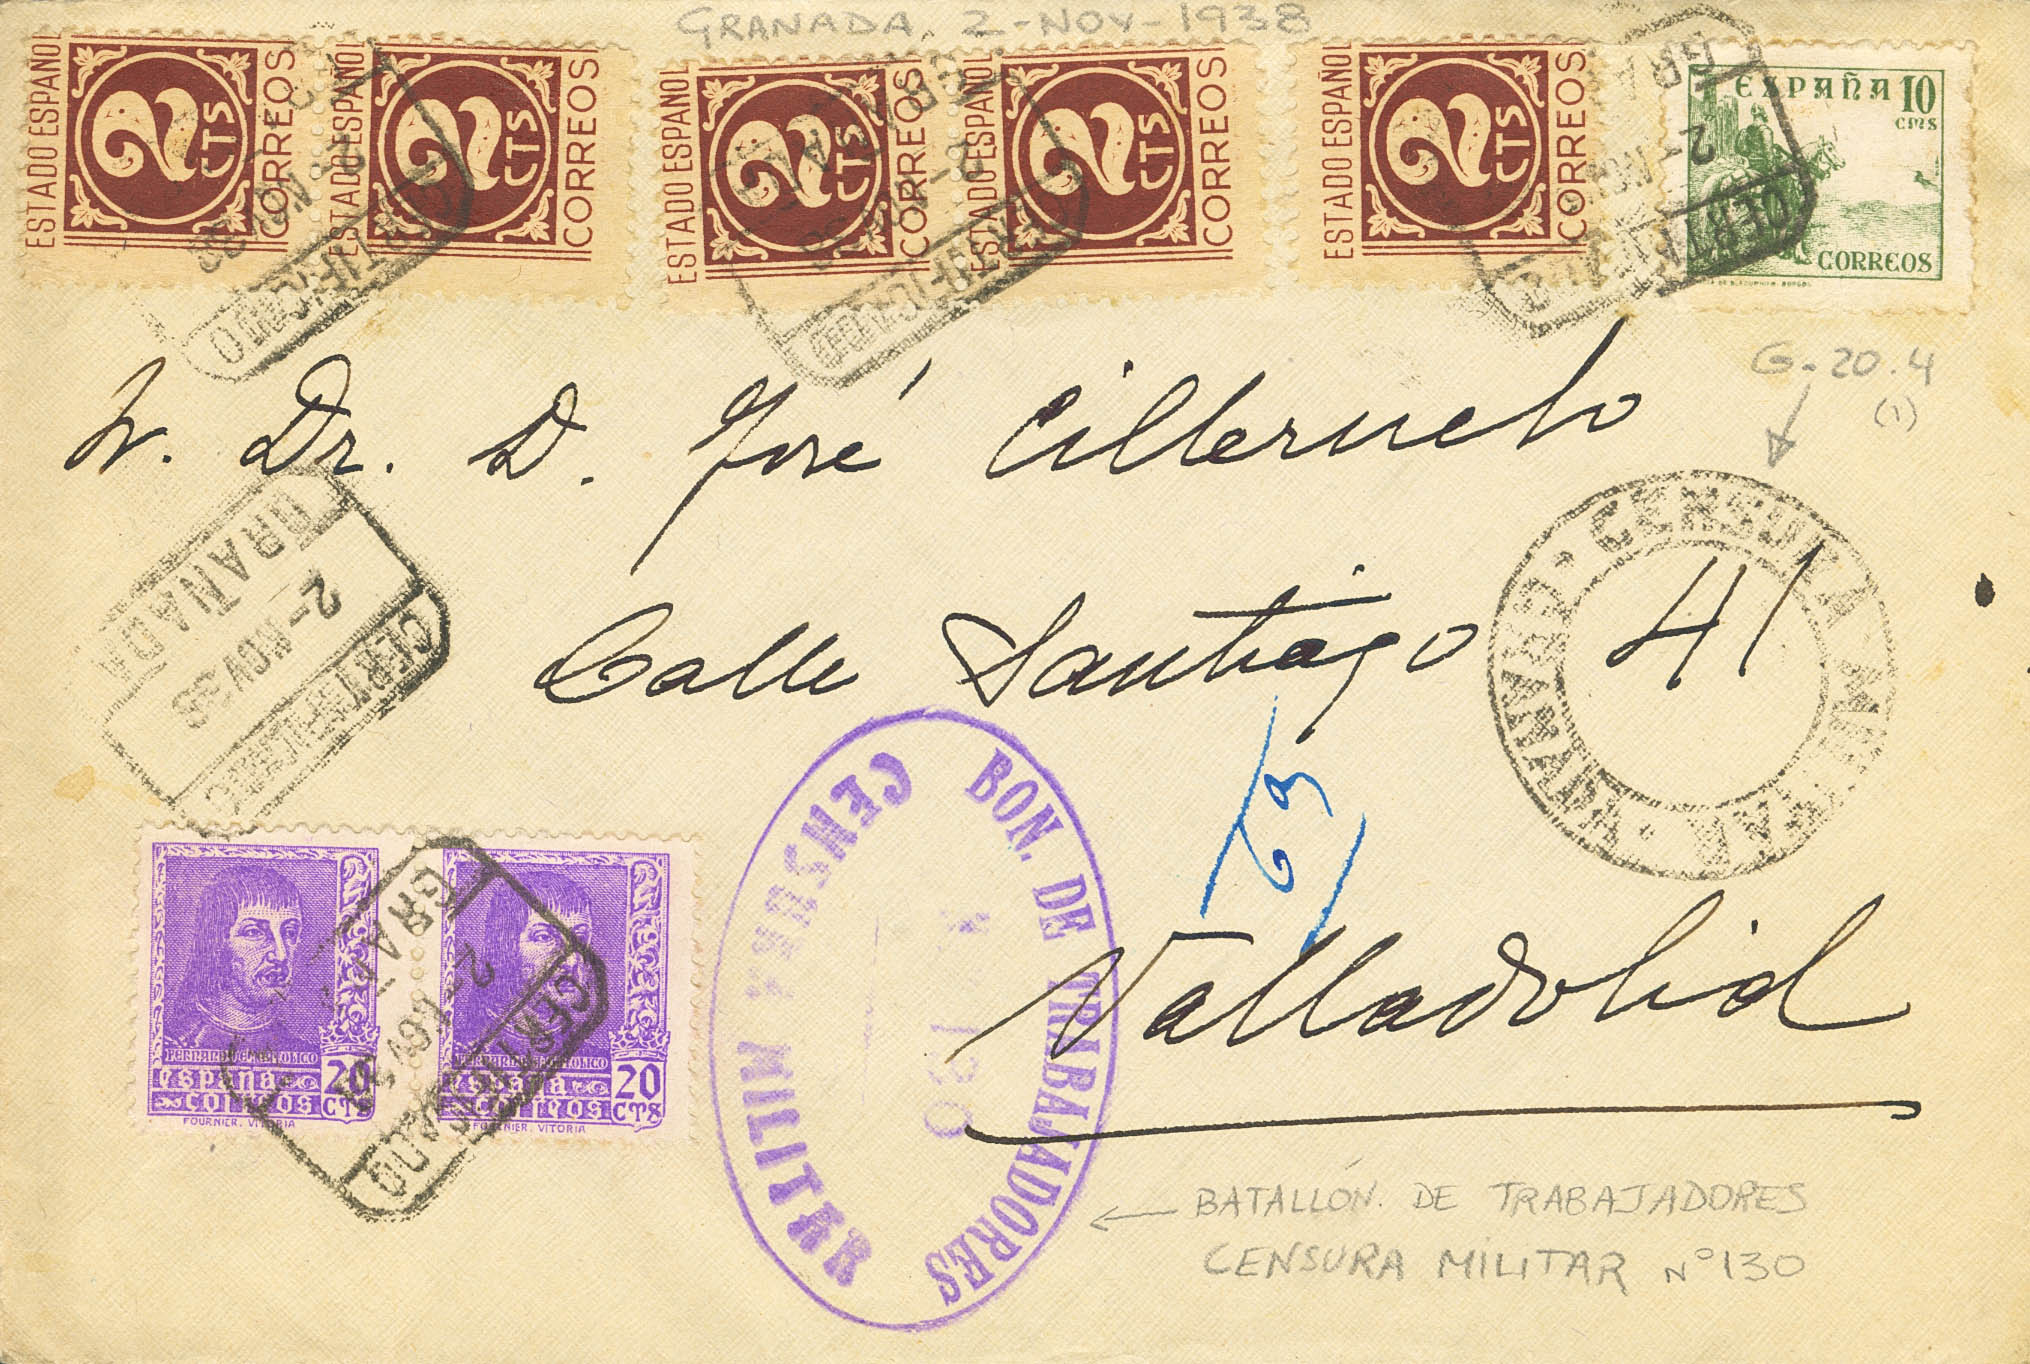 GRANADA, 2-NOV-1938
ESTADO ESPAÑOL 2 CTS CORREOS
ESTADO ESPAÑOL 2 CTS CORREOS
ESTADO ESPAÑOL 2 CTS CORREOS
ESTADO ESPAÑOL 2 CTS CORREOS
ESTADO ESPAÑOL 2 CTS CORREOS
ESPAÑA 10 CMS
CORREOS
G-20.4
(1)
Sr. Dr. D. José Cilleruelo
CENSURA MILITAR · GRANADA ·
Calle Santiago 41
CERTIFICADO
2-NOV 38
GRANADA
63
Valladolid
FERNANDO EL CATOLICO
ESPAÑA 20
CORREOS CTS
FOURNIER. VITORIA
FERNANDO EL CATOLICO
ESPAÑA 20
CORREOS CTS
FOURNIER. VITORIA
BON. DE TRABAJADORES
Nº 130
CENSURA MILITAR
← BATALLÓN. DE TRABAJADORES
CENSURA MILITAR Nº130